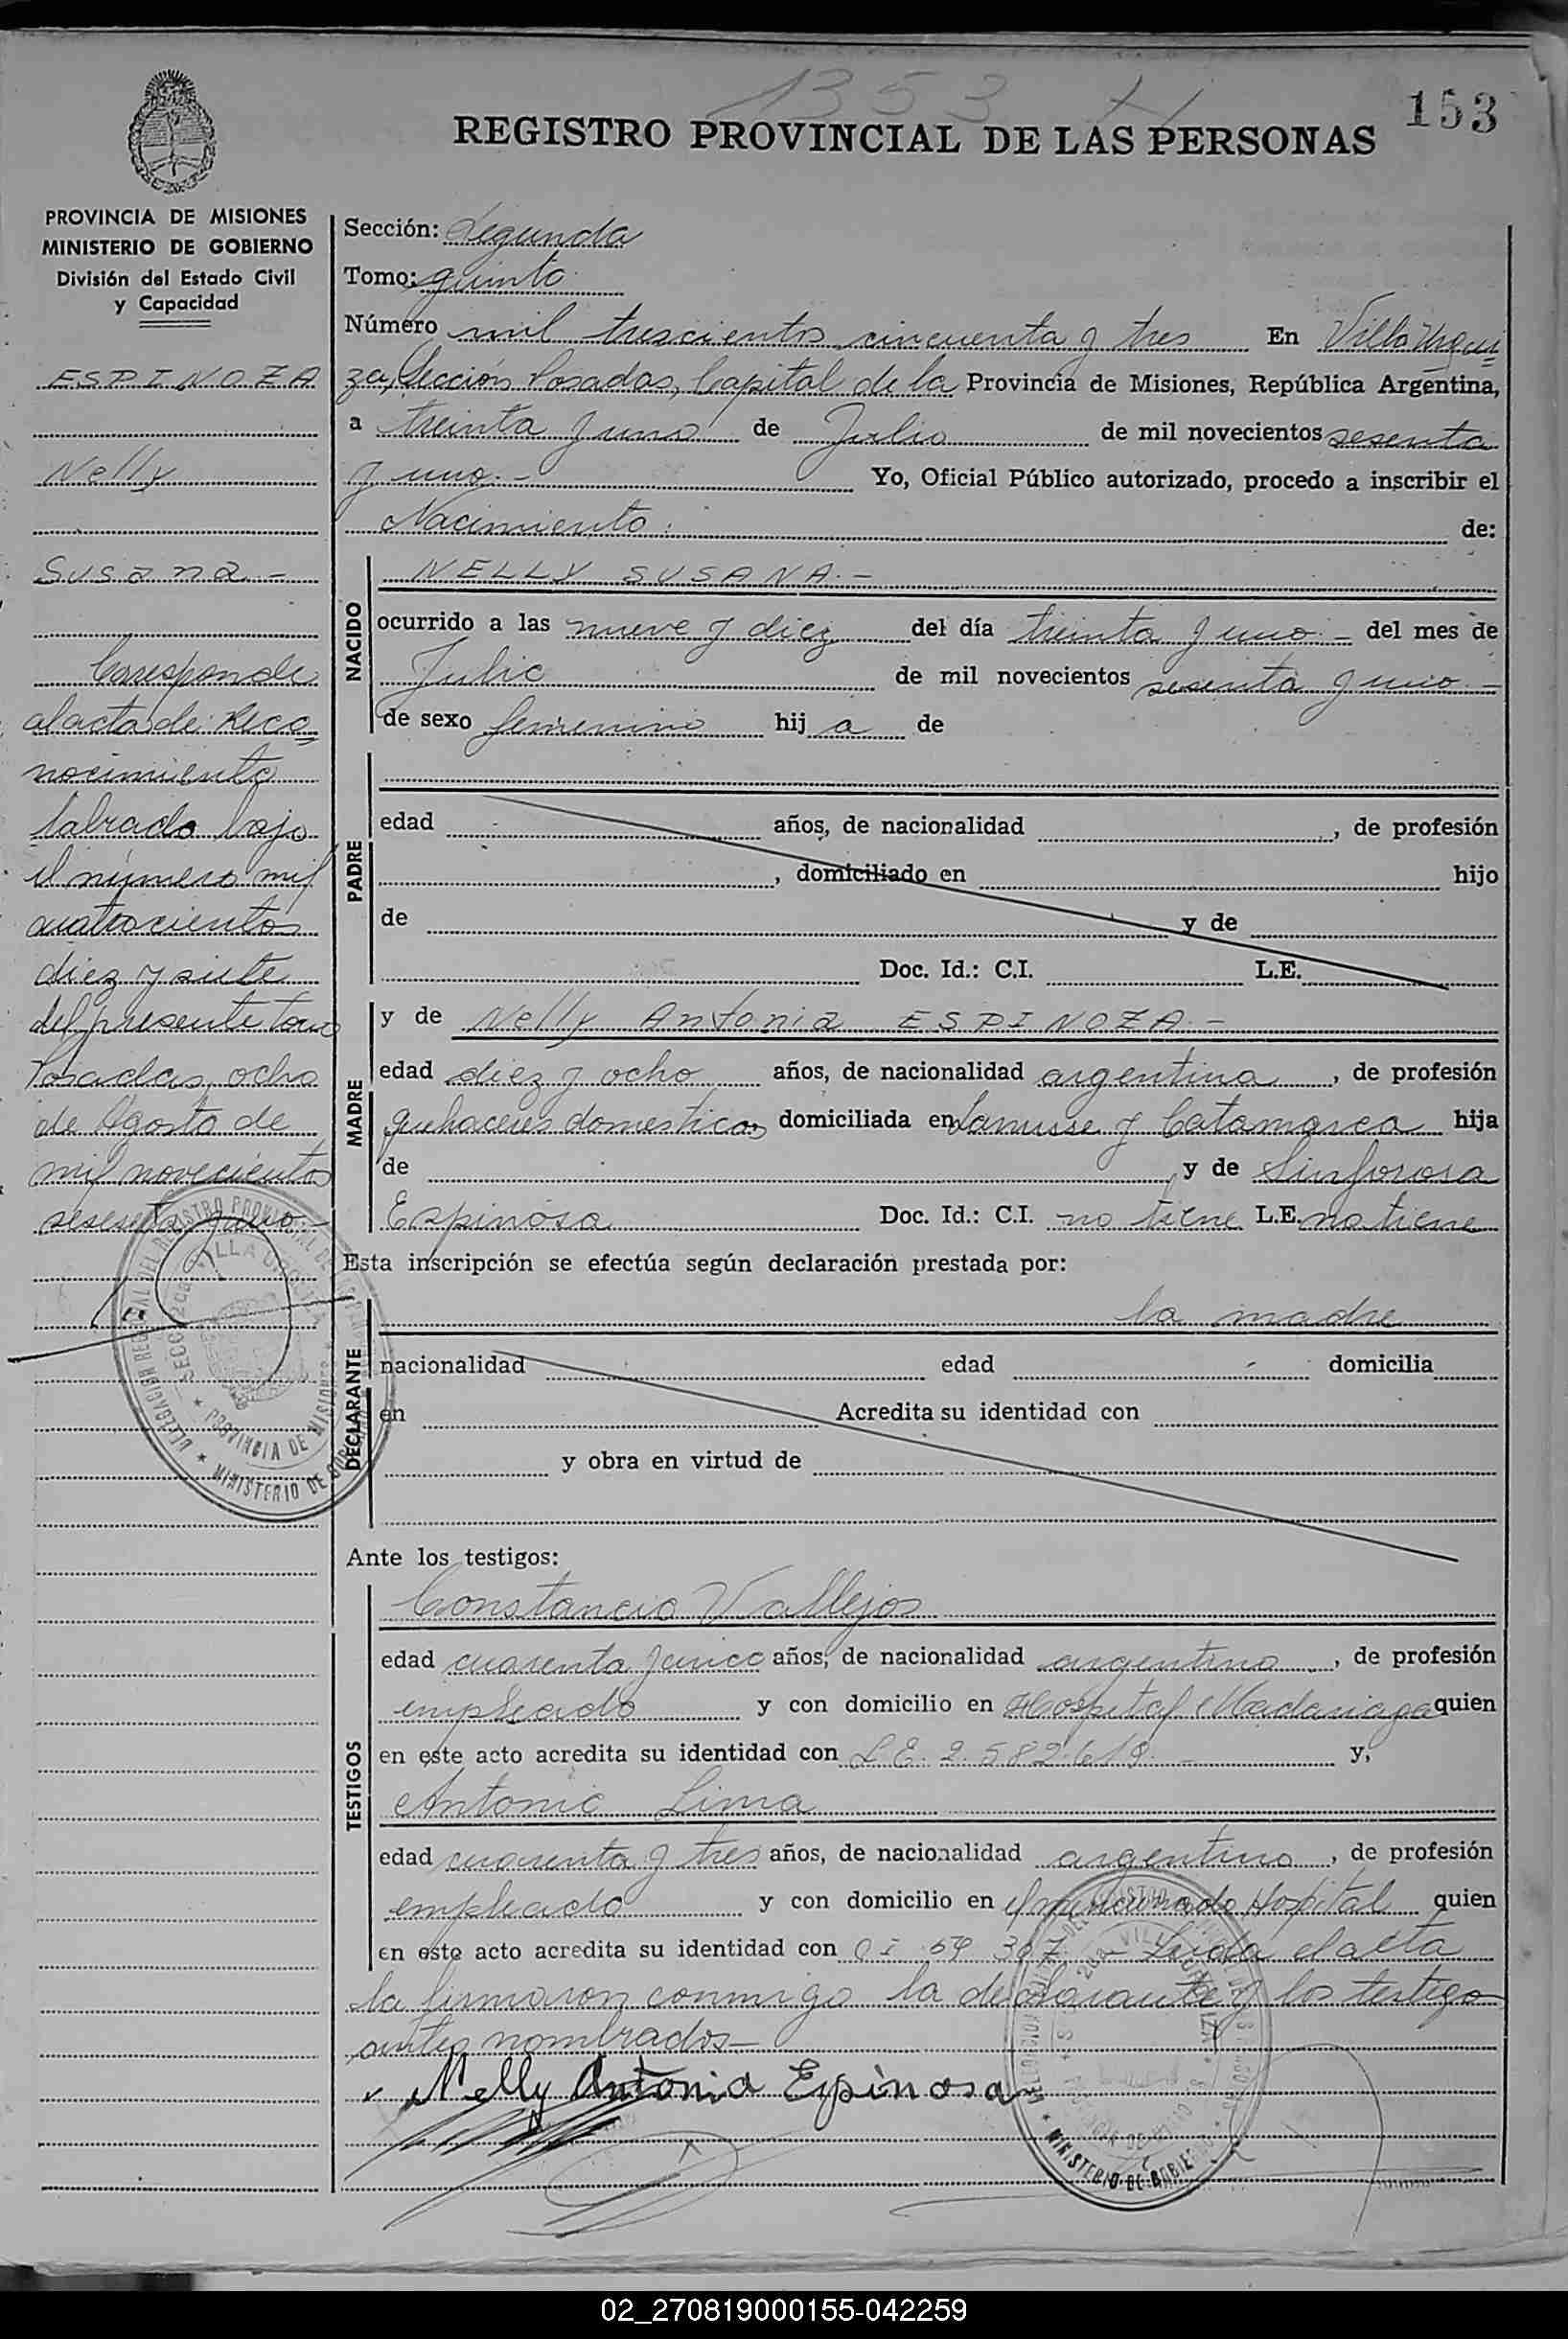 1353
153
REGISTRO PROVINCIAL DE LAS PERSONAS
PROVINCIA DE MISIONES
MINISTERIO DE GOBIERNO
División del Estado Civil
y Capacidad
ESPINOZA
Nelly
Susana.-
Corresponde
al acta de Reco=
nocimiento
labrado bajo
el número mil
cuatrocientos
diez y siete
del presente tomo
Posadas, ocho
de Agosto de
mil novecientos
sesenta y uno.-
Sección: Segunda
Tomo: quinto
Número mil trescientos cincuenta y tres En Villa Urqui=
za, Sección Posadas, Capital de la Provincia de Misiones, República Argentina,
a treinta y uno de Julio de mil novecientos sesenta
y uno.- Yo, Oficial Público autorizado, procedo a inscribir el
Nacimiento: de:
NACIDO
NELLY SUSANA.-
ocurrido a las nueve y diez del día treinta y uno.- del mes de
Julio de mil novecientos sesenta y uno.-
de sexo femenino hija de
PADRE
edad años, de nacionalidad , de profesión
, domiciliado en hijo
de y de
Doc. Id.: C.I. L.E.
MADRE
y de Nelly Antonia ESPINOZA.-
edad diez y ocho años, de nacionalidad argentina , de profesión
quehaceres domesticos domiciliada en Lanusse y Catamarca hija
de y de Sinforosa
Espinosa Doc. Id.: C.I. no tiene L.E. no tiene
Esta inscripción se efectúa según declaración prestada por:
DECLARANTE
la madre
nacionalidad edad domicilia
en Acredita su identidad con
y obra en virtud de
Ante los testigos:
TESTIGOS
Constancio Vallejos
edad cuarenta y cinco años, de nacionalidad argentino , de profesión
empleado y con domicilio en Hospital Madariaga quien
en este acto acredita su identidad con L.E. 2.582.619.- y,
Antonio Lima
edad cuarenta y tres años, de nacionalidad argentino , de profesión
empleado y con domicilio en el mencionado Hospital quien
en este acto acredita su identidad con C I 59 367 - Leida el acta
la firmaron conmigo la declarante y los testigos
antes nombrados-
Nelly Antonia Espinosa
MINISTERIO DE GOBIE
02_270819000155-042259